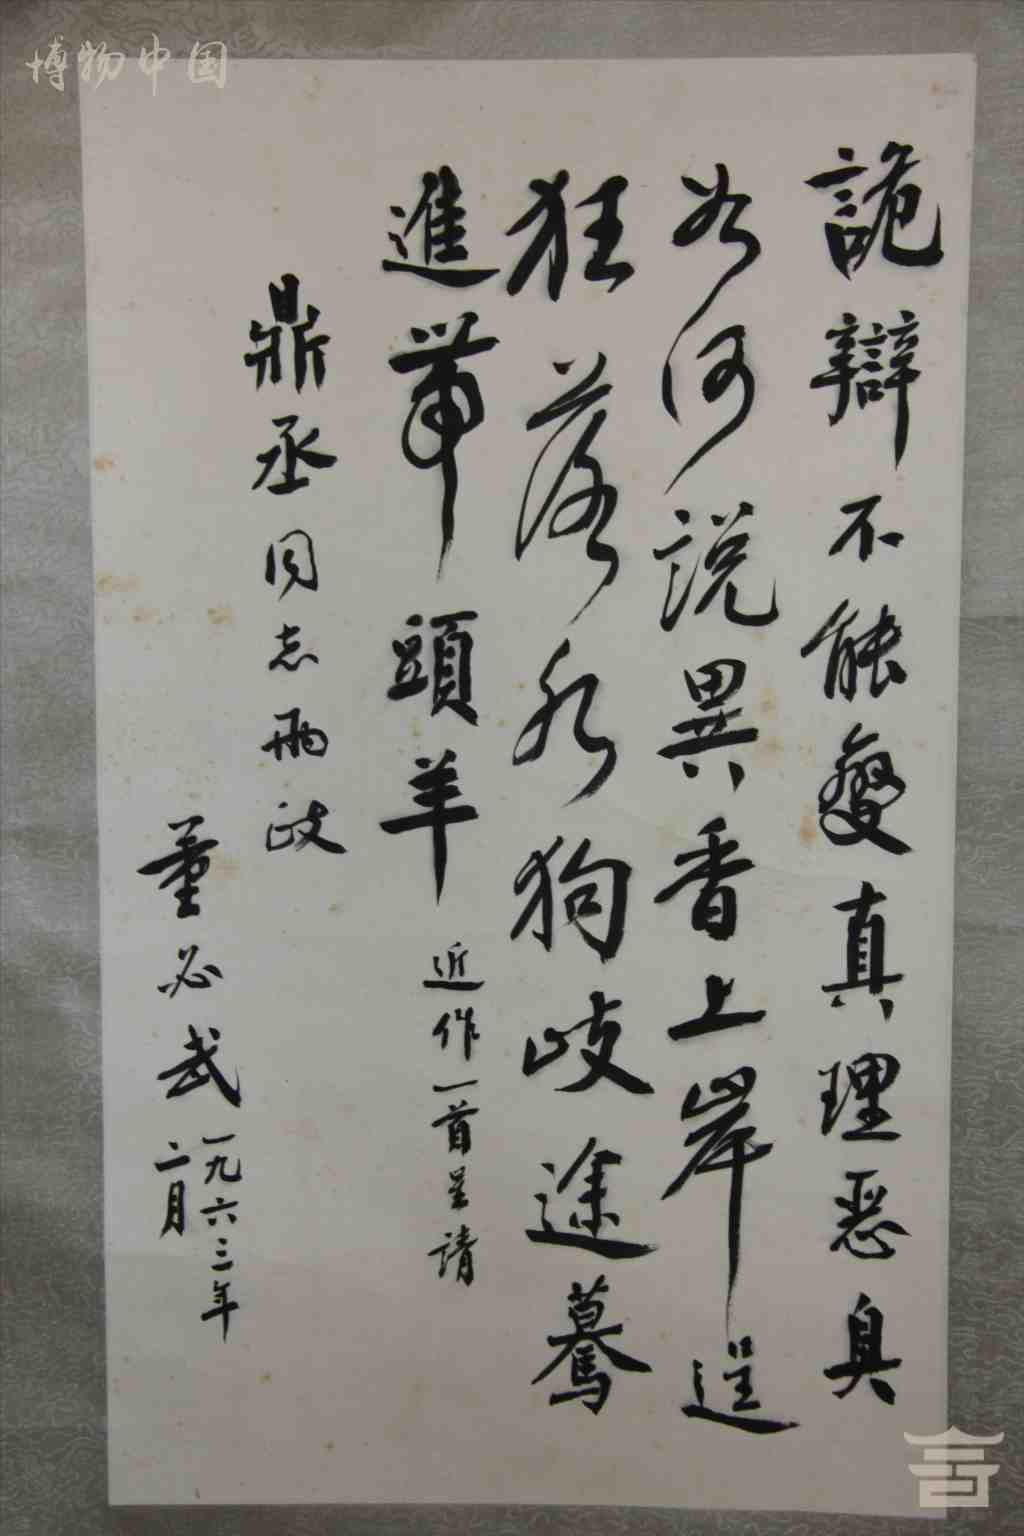 博物中国
詭辯不能變真理恶臭
如何説異香上岸逞
狂落水狗歧途驀
進帶頭羊 近作一首呈請
鼎丞同志兩政
董必武 一九六三年
二月